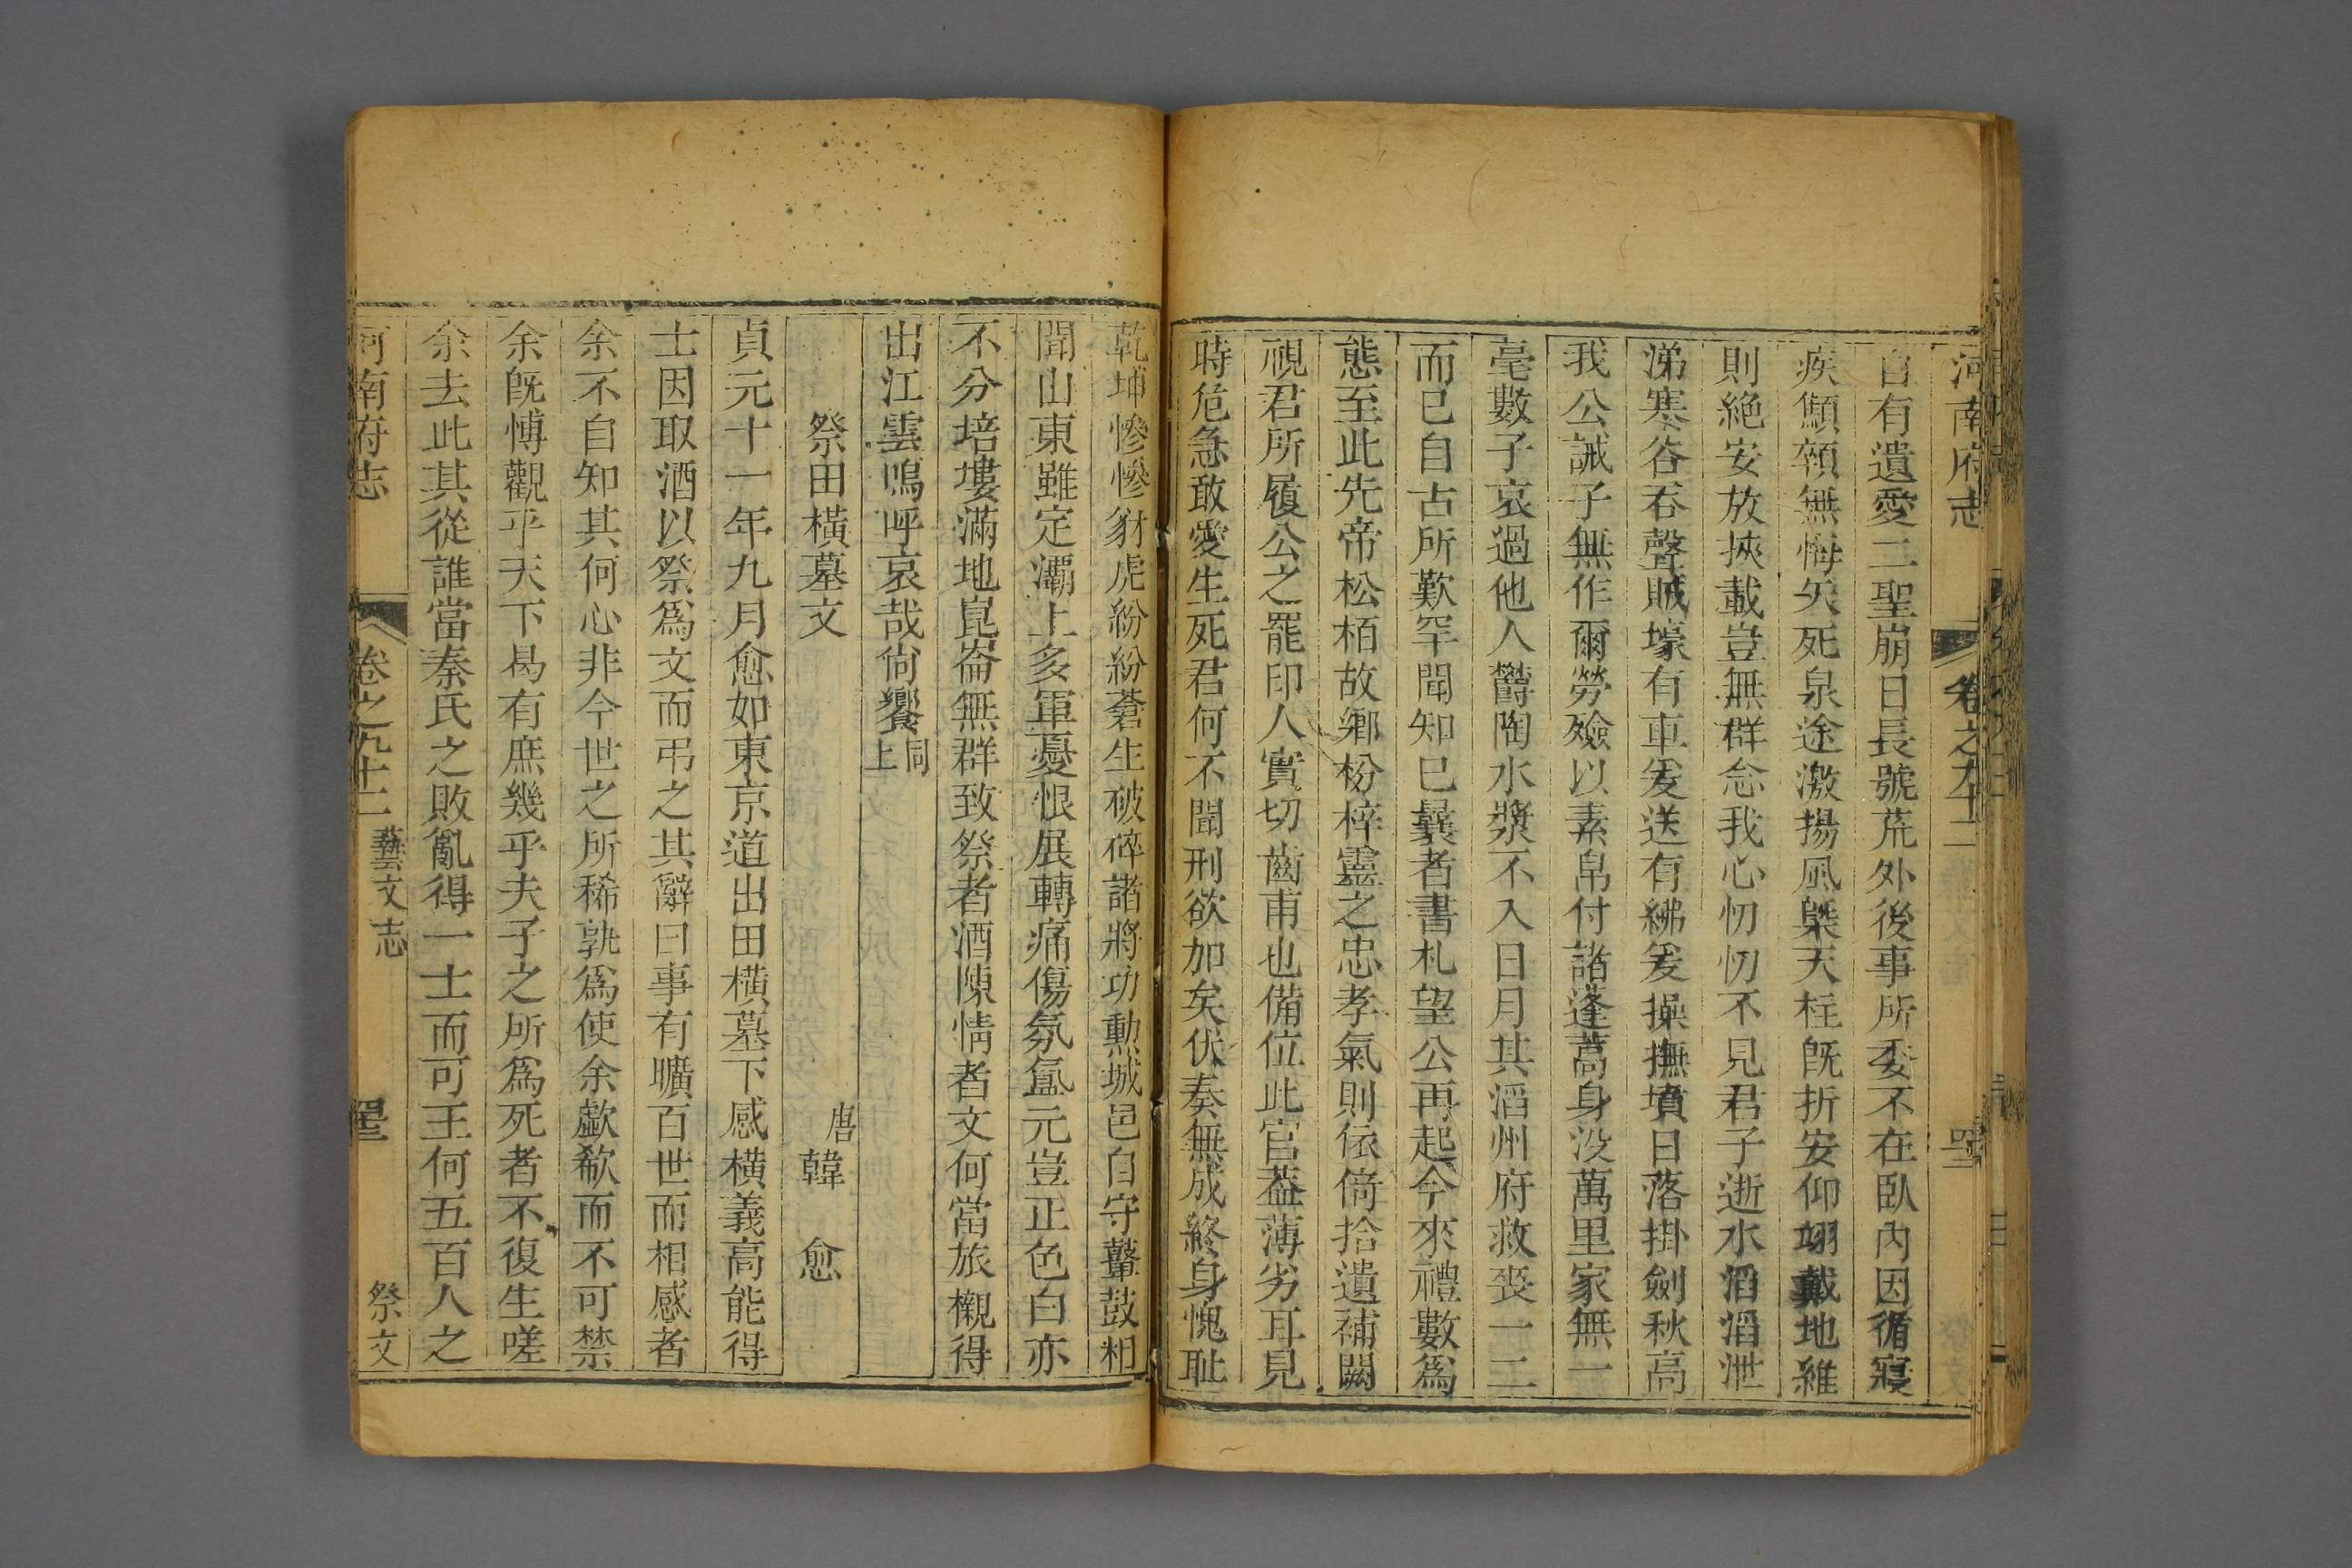 河南府志 卷之九十二
自有遺愛二聖崩日長號荒外後事所委不在臥內因循寢
疾顦顇無悔矢死泉途激揚風槩天柱旣折安仰翊戴地維
則絶安放挾載豈無群彥我心忉忉不見君子逝水滔滔泄
涕寒谷吞聲賊壕有車爰送有紼爰操撫墳日落掛劒秋高
我公誡子無作爾勞殮以素帛付諸蓬蒿身没萬里家無一
毫數子哀過他人鬱陶水漿不入日月其滔州府救喪一二
而已自古所歎罕聞知已曩者書札望公再起今來禮數爲
態至此先帝松栢故鄉枌梓靈之忠孝氣則依倚拾遺補闕
視君所履公之罷印人實切齒甫也備位此官葢薄劣耳見
時危急敢愛生死君何不聞刑欲加矣伏奏無成終身愧耻
乾坤慘慘豺虎紛紛蒼生破碎諸將功勲城邑自守鼙鼓相
聞山東雖定灞上多軍憂恨展轉痛傷氛氳元豈正色白亦
不分培塿滿地崑崙無群致祭者酒陳情者文何當旅櫬得
出江雲嗚呼哀哉尙饗同上
祭田橫墓文
唐 韓 愈
貞元十一年九月愈如東京道出田橫墓下感橫義高能得
士因取酒以祭爲文而弔之其辭曰事有曠百世而相感者
余不自知其何心非今世之所稀孰爲使余歔欷而不可禁
余旣博觀乎天下曷有庶幾乎夫子之所爲死者不復生嗟
余去此其從誰當秦氏之敗亂得一士而可王何五百人之
河南府志 卷之九十二 藝文志 祭文